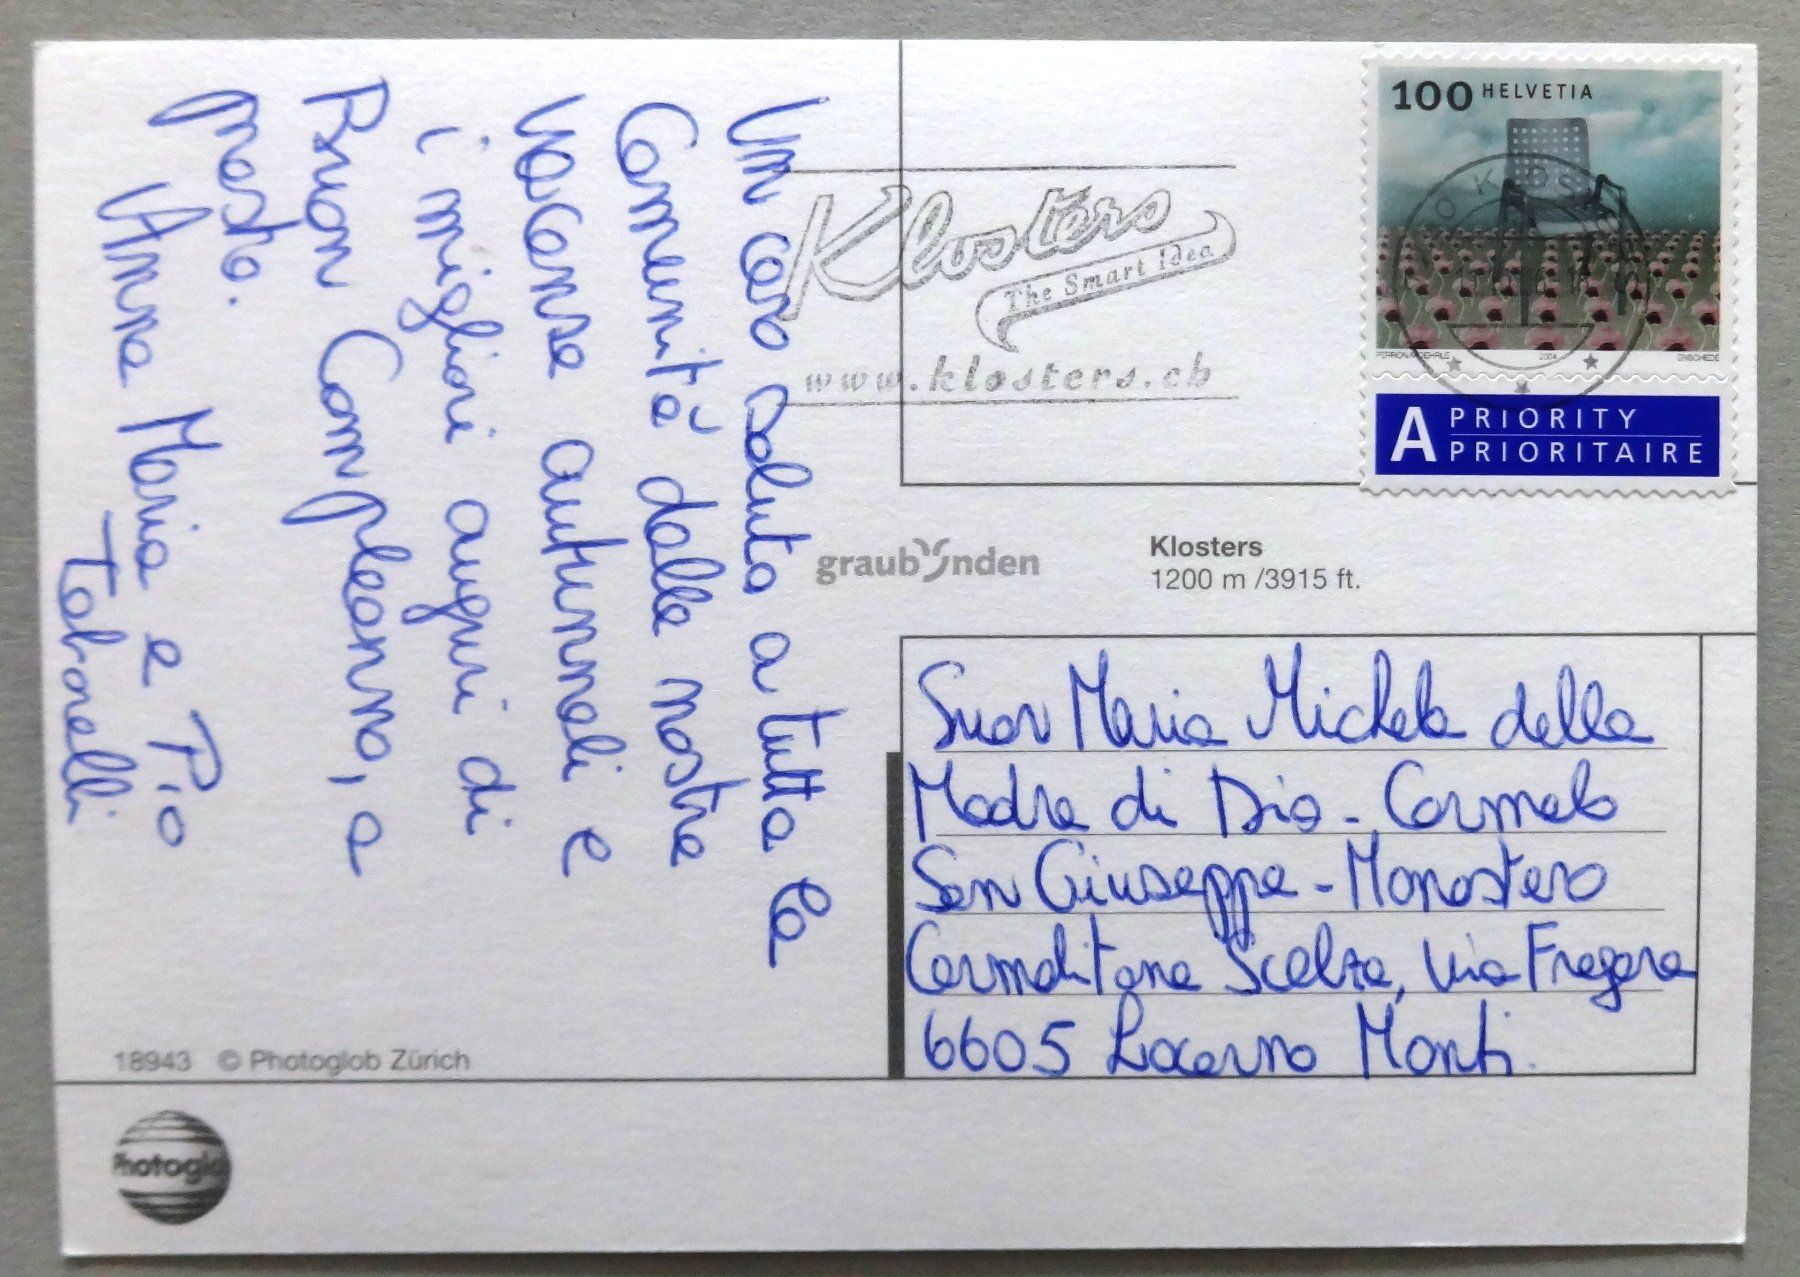 Un caro saluto a tutta la
Comunità dalle nostre
vacanze autunnali e
i migliori auguri di
Buon Compleanno, a
presto.
Anna Maria e Pio
100 HELVETIA
PERRON/MOEHRLE 2004 ENSCHEDÉ
A PRIORITY
PRIORITAIRE
Klosters
The Smart Idea
www.klosters.ch
graubünden
Klosters
1200 m /3915 ft.
Suor Maria Michela della
Madre di Dio - Carmelo
San Giuseppe - Monastero
Carmelitane Scalze, Via Fregera
6605 Locarno Monti.
18943 © Photoglob Zürich